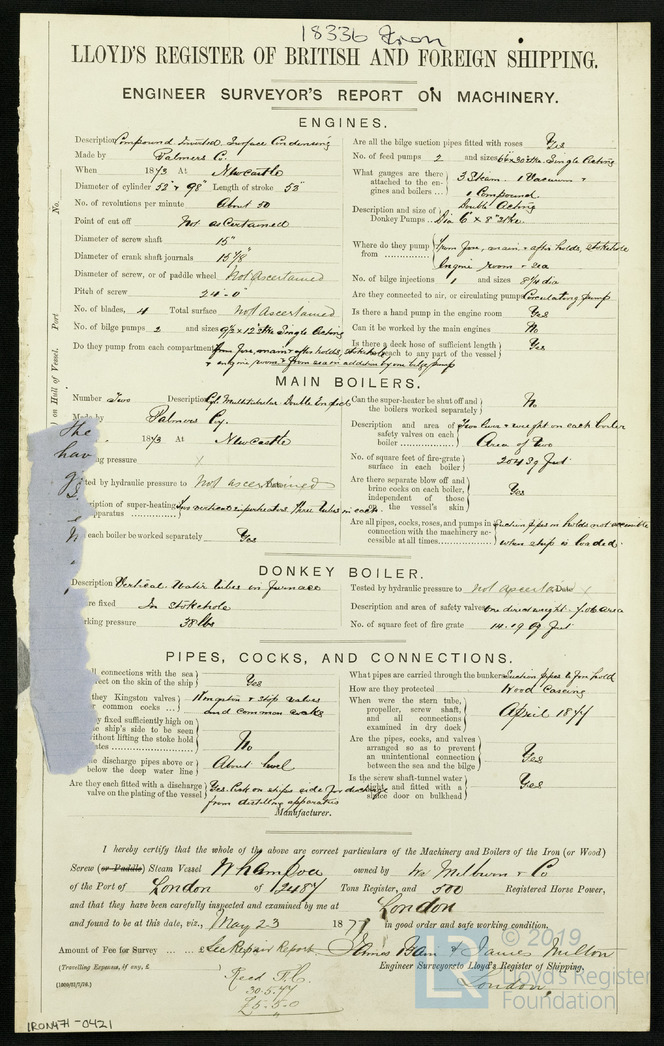 18336 Iron
LLOYD'S REGISTER OF BRITISH AND FOREIGN SHIPPING.
ENGINEER SURVEYOR'S REPORT ON MACHINERY.
ENGINES.
Description Compound Inverted Surface Condensing
Made by Palmers Co.
When 1873 At Newcastle
Diameter of cylinder 52 & 98" Length of stroke 53"
No. of revolutions per minute About 50
Point of cut off Not ascertained
Diameter of screw shaft 15"
Diameter of crank shaft journals 15 7/8"
Diameter of screw, or of paddle wheel Not Ascertained
Pitch of screw 24'-0"
No. of blades, 4 Total surface Not ascertained
No. of bilge pumps 2 and sizes Single Acting
Do they pump from each compartment from fore, main & after holds, stokehole
& engine room & from sea in addition by one bilge pump
Are all the bilge suction pipes fitted with roses Yes
No. of feed pumps 2 and sizes Single Acting
What gauges are there
attached to the en-
gines and boilers ... 3 Steam. 1 Vacuum &
1 Compound
Description and size of
Donkey Pumps ... Double Acting
Dia 6" x 8" Stke.
Where do they pump
from from fore, main, & after holds, stokehole
Engine room & sea
No. of bilge injections 1 and sizes dia
Are they connected to air, or circulating pumps Circulating pump
Is there a hand pump in the engine room Yes
Can it be worked by the main engines No
Is there a deck hose of sufficient length
to reach to any part of the vessel Yes
No. Port ) on Hull of Vessel.
MAIN BOILERS.
Number Two Description Cyl. Multitubular Double Ended
Made by Palmers Coy.
1873 At Newcastle
ing pressure
ted by hydraulic pressure to Not ascertained Date
escription of super-heating
apparatus Two vertical superheaters Three tubes in each
each boiler be worked separately Yes
Can the super-heater be shut off and
the boilers worked separately No
Description and area of
safety valves on each
boiler Two lever & weight on each boiler
Area of two
No. of square feet of fire-grate
surface in each boiler feet
Are there separate blow off and
brine cocks on each boiler,
independent of those
on the vessel's skin Yes
Are all pipes, cocks, roses, and pumps in
connection with the machinery ac-
cessible at all times Suction pipes in holds not accessible
when ship is loaded.
The
hav
DONKEY BOILER.
Description Vertical. Water tubes in furnace
re fixed In stokehole
rking pressure 38 lbs
Tested by hydraulic pressure to not ascertained Date
Description and area of safety valves one direct weight area
No. of square feet of fire grate feet
PIPES, COCKS, AND CONNECTIONS.
ll connections with the sea
rect on the skin of the ship Yes
they Kingston valves
or common cocks ... Kingston & stop valves
and common cocks
y fixed sufficiently high on
he ship's side to be seen
without lifting the stoke hold
ates No
he discharge pipes above or
below the deep water line About level
Are they each fitted with a discharge
valve on the plating of the vessel Yes. Cock on ships side for discharge
from distilling apparatus
What pipes are carried through the bunkers Suction pipes to fore hold
How are they protected Wood Casing
When were the stern tube,
propeller, screw shaft,
and all connections
examined in dry dock April 1877
Are the pipes, cocks, and valves
arranged so as to prevent
an unintentional connection
between the sea and the bilge Yes
Is the screw shaft-tunnel water
tight, and fitted with a
sluice door on bulkhead Yes
Manufacturer.
I hereby certify that the whole of the above are correct particulars of the Machinery and Boilers of the Iron (or Wood)
Screw (or Paddle) Steam Vessel Whampoa owned by Wm Milburn & Co
of the Port of London of 1248 Tons Register, and 500 Registered Horse Power,
and that they have been carefully inspected and examined by me at London
and found to be at this date, viz., May 23 1877 in good order and safe working condition.
Amount of Fee for Survey ... £ See Repair Report James Bain & James Milton
(Travelling Expenses, if any, £ Engineer Surveyors to Lloyd's Register of Shipping,
London
Recd F.C.
30.5.77
£5-5-0
© 2019
LR
Lloyd's Register
Foundation
IRON471-0421